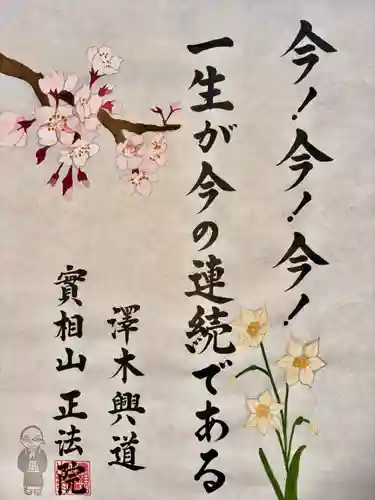 今!今!今!
一生が今の連続である
澤木興道
實相山 正法院